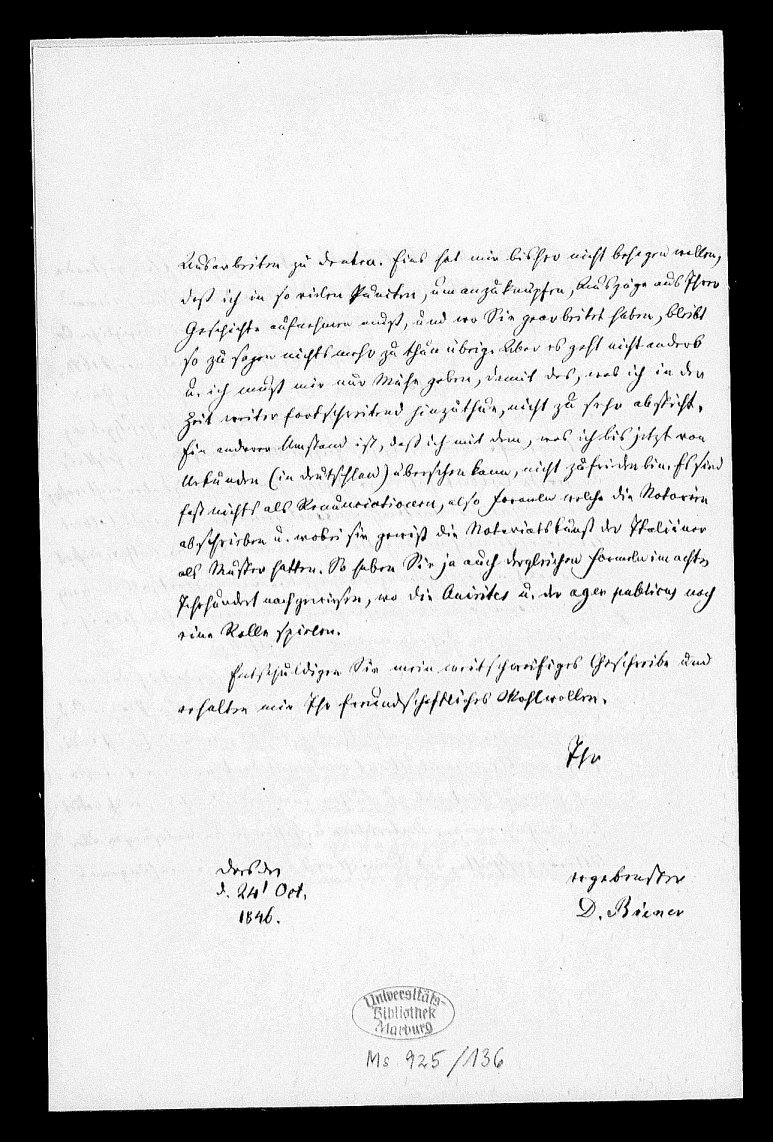 Ausarbeiten zu denken. Eins hat mir bisher nicht behagen wollen,
daß ich in so vielen Puncten, um anzuknüpfen, Auszüge aus Ihrer
Geschichte aufnehmen muß, und wo Sie gearbeitet haben, bleibt
so zu sagen nichts mehr zu thun übrig. Aber es geht nicht anders
u. ich muß mir nur Mühe geben, damit das, was ich in der
Zeit weiter fortschreitend hinzuthue, nicht zu sehr absticht.
Ein anderer Umstand ist, daß ich mit dem, was ich bis jetzt von
Urkunden (in Deutschland) übersehen kann, nicht zufrieden bin. Es sind
fast nichts als Renunciationen, also Formeln welche die Notarien
abschrieben u. wobei sie gewiß die Notariatskunst der Italiäner
als Muster hatten. So haben Sie ja auch dergleichen Formeln im achten
Jahrhundert nachgewiesen, wo die Quirites u. der ager publicus noch
eine Rolle spielen.
Entschuldigen Sie mein weitschweifiges Geschreibe und
erhalten mir Ihr freundschaftliches Wohlwollen.
Ihr
Dresden
d. 24 Oct.
1846.
ergebenster
D. Biener
Universitäts-
Bibliothek
Marburg
Ms 925/136